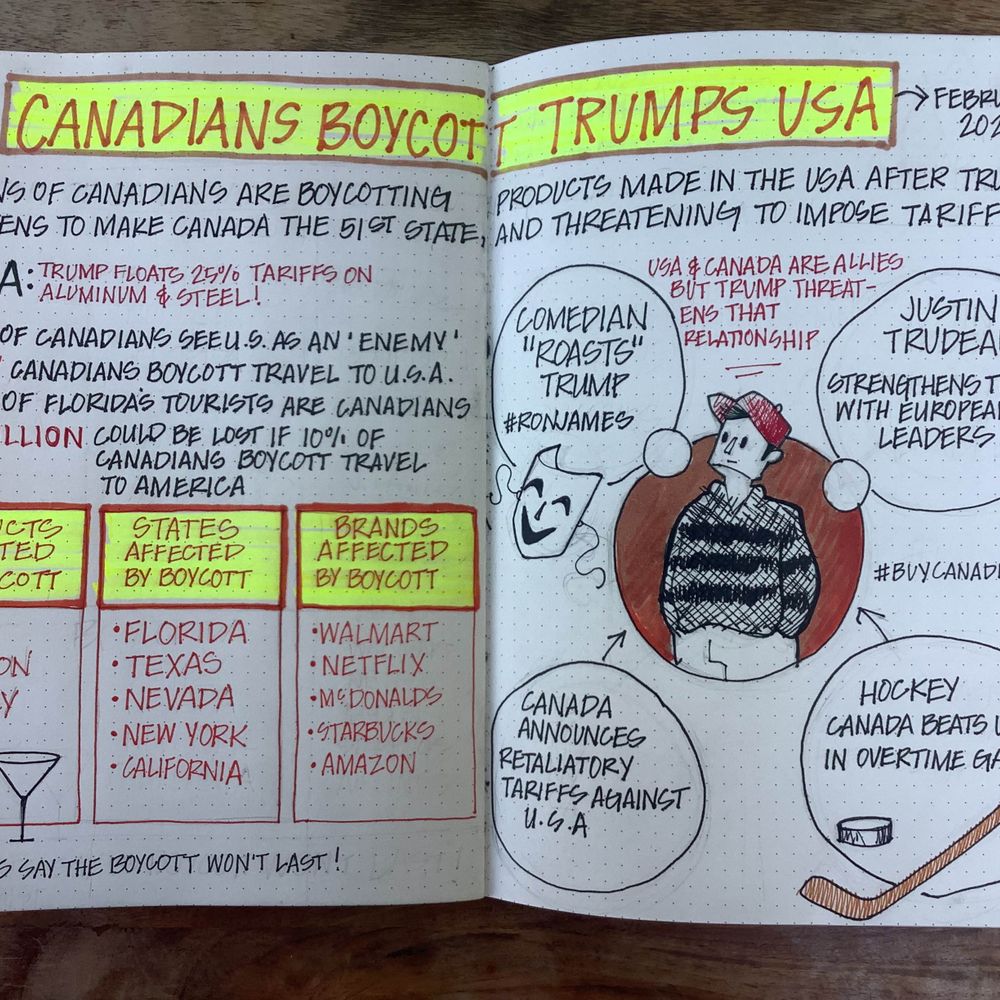 CANADIANS BOYCOTT TRUMPS USA
→ FEBRU
202
NS OF CANADIANS ARE BOYCOTTING PRODUCTS MADE IN THE USA AFTER TRU
ENS TO MAKE CANADA THE 51ST STATE, AND THREATENING TO IMPOSE TARIFF
A: TRUMP FLOATS 25% TARIFFS ON
ALUMINUM & STEEL!
OF CANADIANS SEE U.S. AS AN 'ENEMY'
CANADIANS BOYCOTT TRAVEL TO U.S.A.
OF FLORIDA'S TOURISTS ARE CANADIANS
ILLION COULD BE LOST IF 10% OF
CANADIANS BOYCOTT TRAVEL
TO AMERICA
UCTS
TED
COTT
ON
Y
STATES
AFFECTED
BY BOYCOTT
•FLORIDA
•TEXAS
•NEVADA
•NEW YORK
•CALIFORNIA
BRANDS
AFFECTED
BY BOYCOTT
•WALMART
•NETFLIX
•McDONALDS
•STARBUCKS
•AMAZON
S SAY THE BOYCOTT WON'T LAST!
COMEDIAN
"ROASTS"
TRUMP
#RONJAMES
USA & CANADA ARE ALLIES
BUT TRUMP THREAT-
ENS THAT
RELATIONSHIP
JUSTIN
TRUDEA
STRENGTHENS T
WITH EUROPEA
LEADERS
#BUYCANADI
CANADA
ANNOUNCES
RETALIATORY
TARIFFS AGAINST
U.S.A
HOCKEY
CANADA BEATS U
IN OVERTIME GA